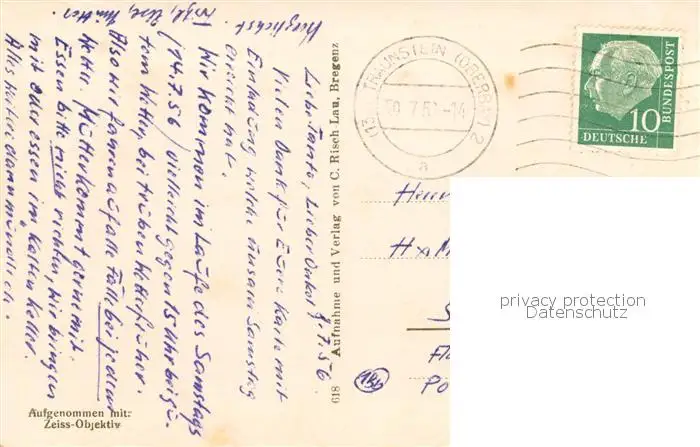 9.7.56
Liebe Tante, Lieber Onkel!
Vielen Dank für Eure Karte mit
Einladung, welche uns am Samstag
erreicht hat.
Wir kommen im Laufe des Samstags
(14.7.56) vielleicht gegen 15 Uhr bei gu-
tem Wetter, bei trübem Wetter früher.
Also wir fahren auf alle Fälle bei jedem
Wetter. Mutter kommt gerne mit.
Essen bitte nicht richten, wir bringen
mit oder essen im kalten Keller.
Alles weitere dann mündlich.
Herzlichst
Mutter.
618 Aufnahme und Verlag von C. Risch Lau, Bregenz
Aufgenommen mit:
Zeiss-Objektiv
(13b) TRAUNSTEIN (OBERBAY) 2
a
DEUTSCHE
BUNDESPOST
10
Herrn
(18b)
privacy protection
Datenschutz